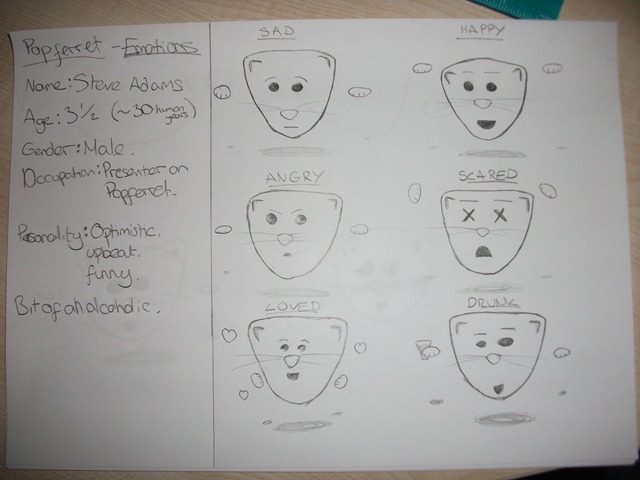 Popferret - Emotions
Name: Steve Adams
Age: 3 1/2 (~30 human
years)
Gender: Male.
Occupation: Presenter on
Popferret.
Personality: Optimistic,
upbeat.
funny.
Bit of an alcoholic.
SAD
HAPPY
ANGRY
SCARED
LOVED
DRUNK